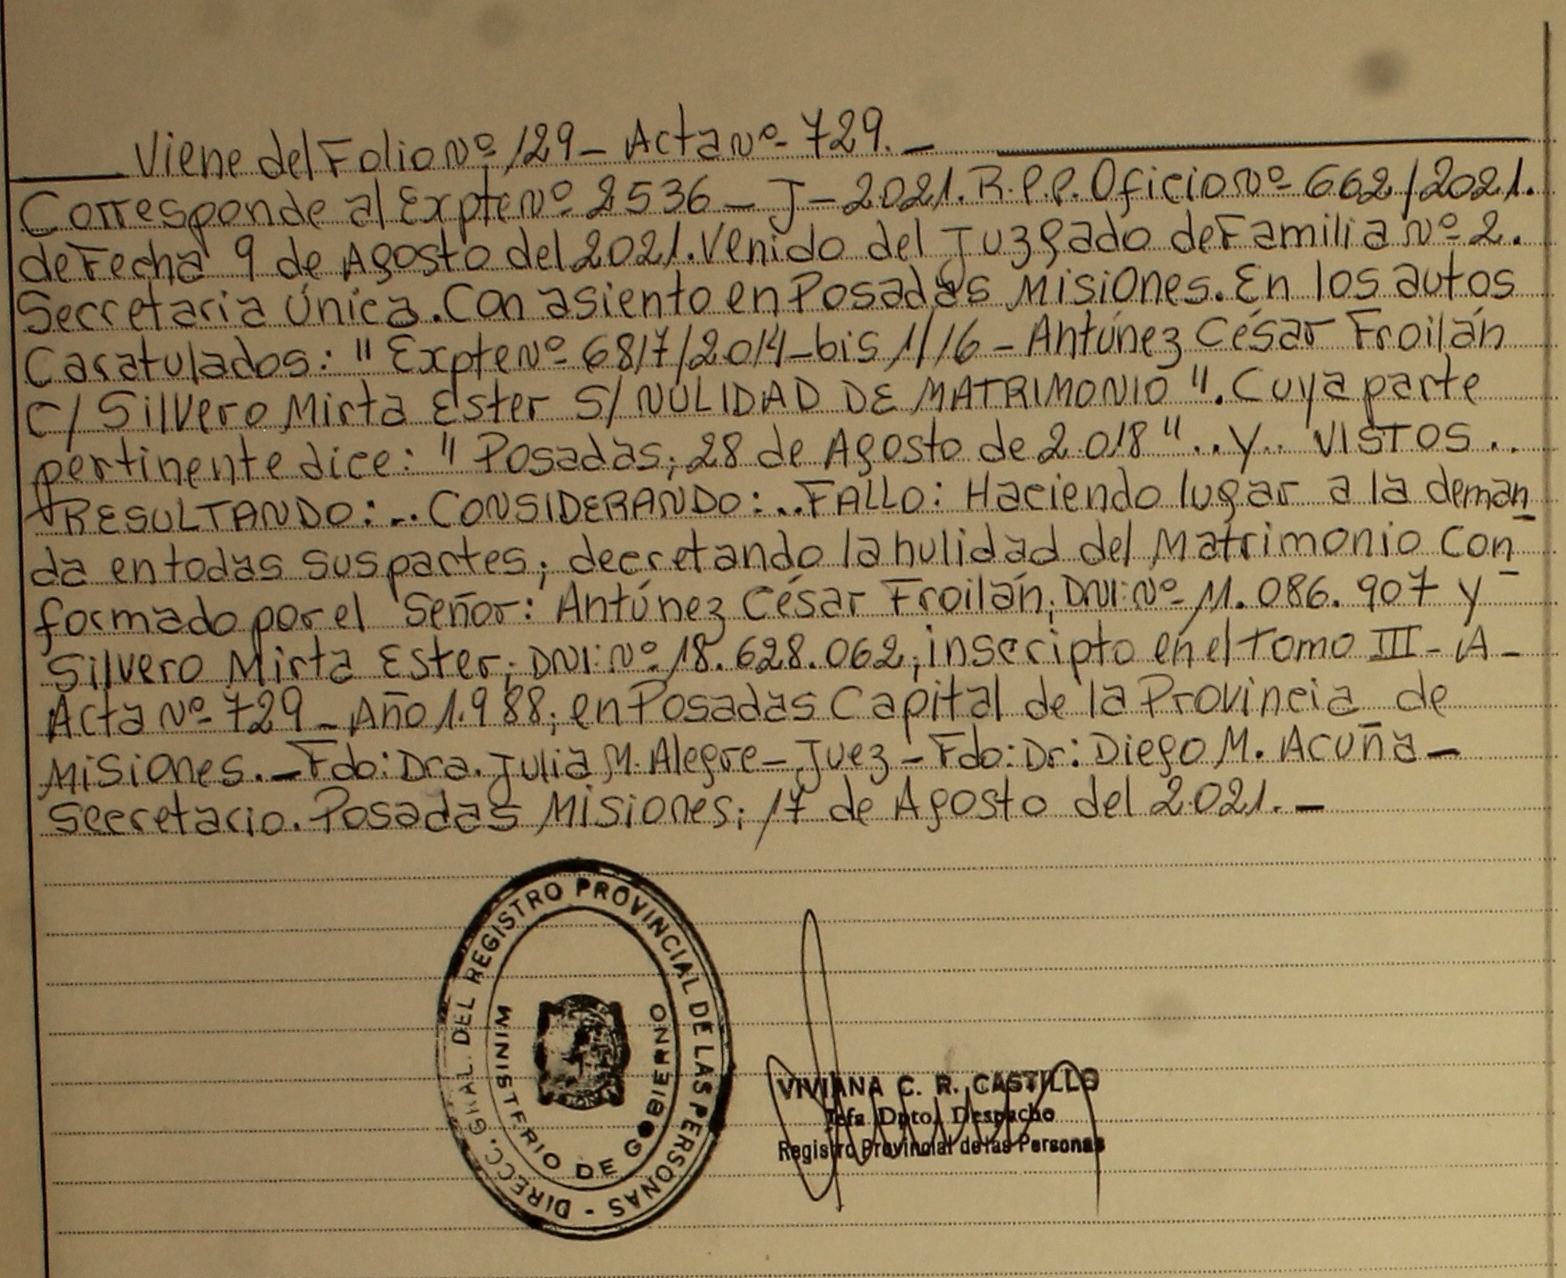 Viene del Folio Nº 129 - Acta Nº 729. -
Corresponde al Expte Nº 2536 - J - 2021. R.P.P. Oficio Nº 662/2021.
de Fecha 9 de Agosto del 2021. Venido del Juzgado de Familia Nº 2.
Secretaría Única. Con asiento en Posadas Misiones. En los autos
Caratulados: " Expte Nº 6817/2014-bis 1/16 - Antúnez César Froilán
C/ Silvero Mirta Ester S/ NULIDAD DE MATRIMONIO ". Cuya parte
pertinente dice: " Posadas, 28 de Agosto de 2.018 " .. Y .. VISTOS ..
RESULTANDO: .. CONSIDERANDO: .. FALLO: Haciendo lugar a la deman
da en todas sus partes, decretando la nulidad del Matrimonio Con
formado por el Señor: Antúnez César Froilán, DNI: Nº 11.086.907 y
Silvero Mirta Ester, DNI: Nº 18.628.062, inscripto en el Tomo III - A -
Acta Nº 729 - Año 1.988, en Posadas Capital de la Provincia de
Misiones. - Fdo: Dra. Julia M. Alegre - Juez - Fdo: Dr: Diego M. Acuña -
Secretario. Posadas Misiones, 17 de Agosto del 2.021. -
DIRECC. GRAL. DEL REGISTRO PROVINCIAL DE LAS PERSONAS -
MINISTERIO DE GOBIERNO
VIVIANA C. R. CASTILLO
Jefa Dpto. Despacho
Registro Provincial de las Personas